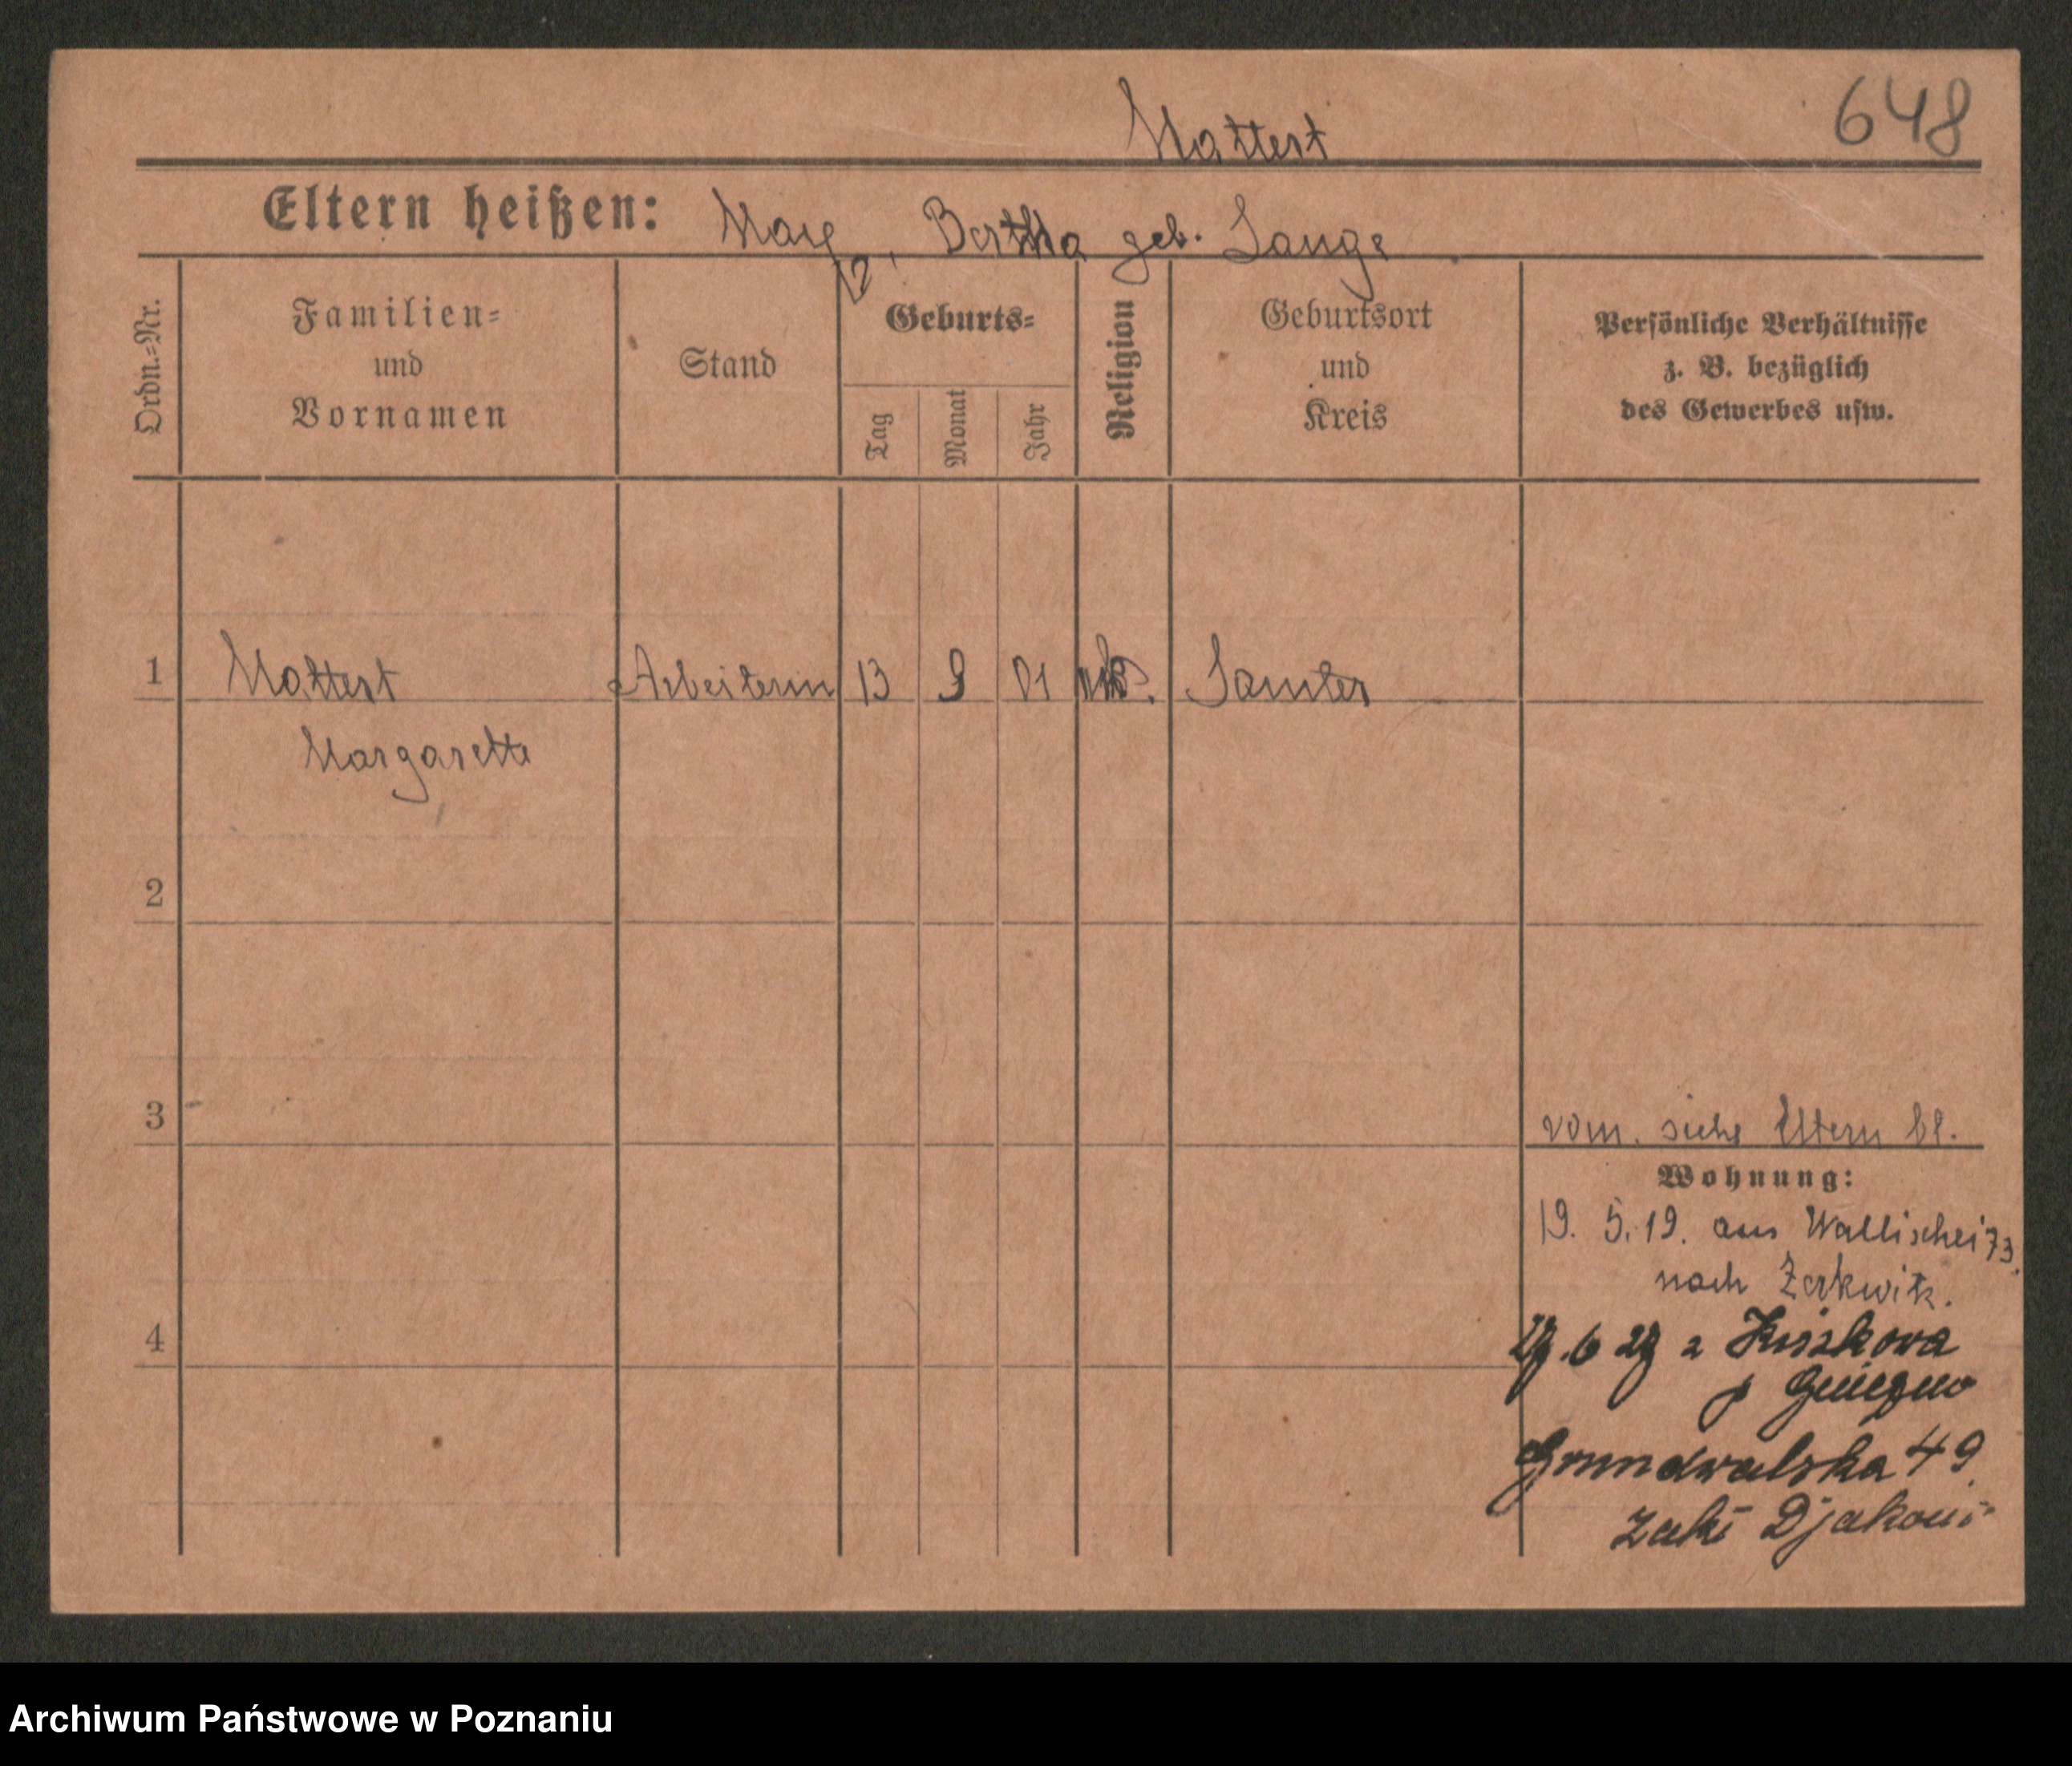 Mattert
648
Eltern heißen: Max, Bertha geb. Lange
Ordn.-Nr.
Familien-
und
Vornamen
Stand
Geburts-
Tag
Monat
Jahr
Religion
Geburtsort
und
Kreis
Persönliche Verhältnisse
z. B. bezüglich
des Gewerbes usw.
1 Mattert Arbeiterin 13 9 01 Samter
Margarette
2
3
vom. siehe Eltern bl.
Wohnung:
19. 5. 19. aus Wallischei 73.
nach Zerkwitz.
4
6 z Kiszkowa
p Gniezno
Grunwalska 49